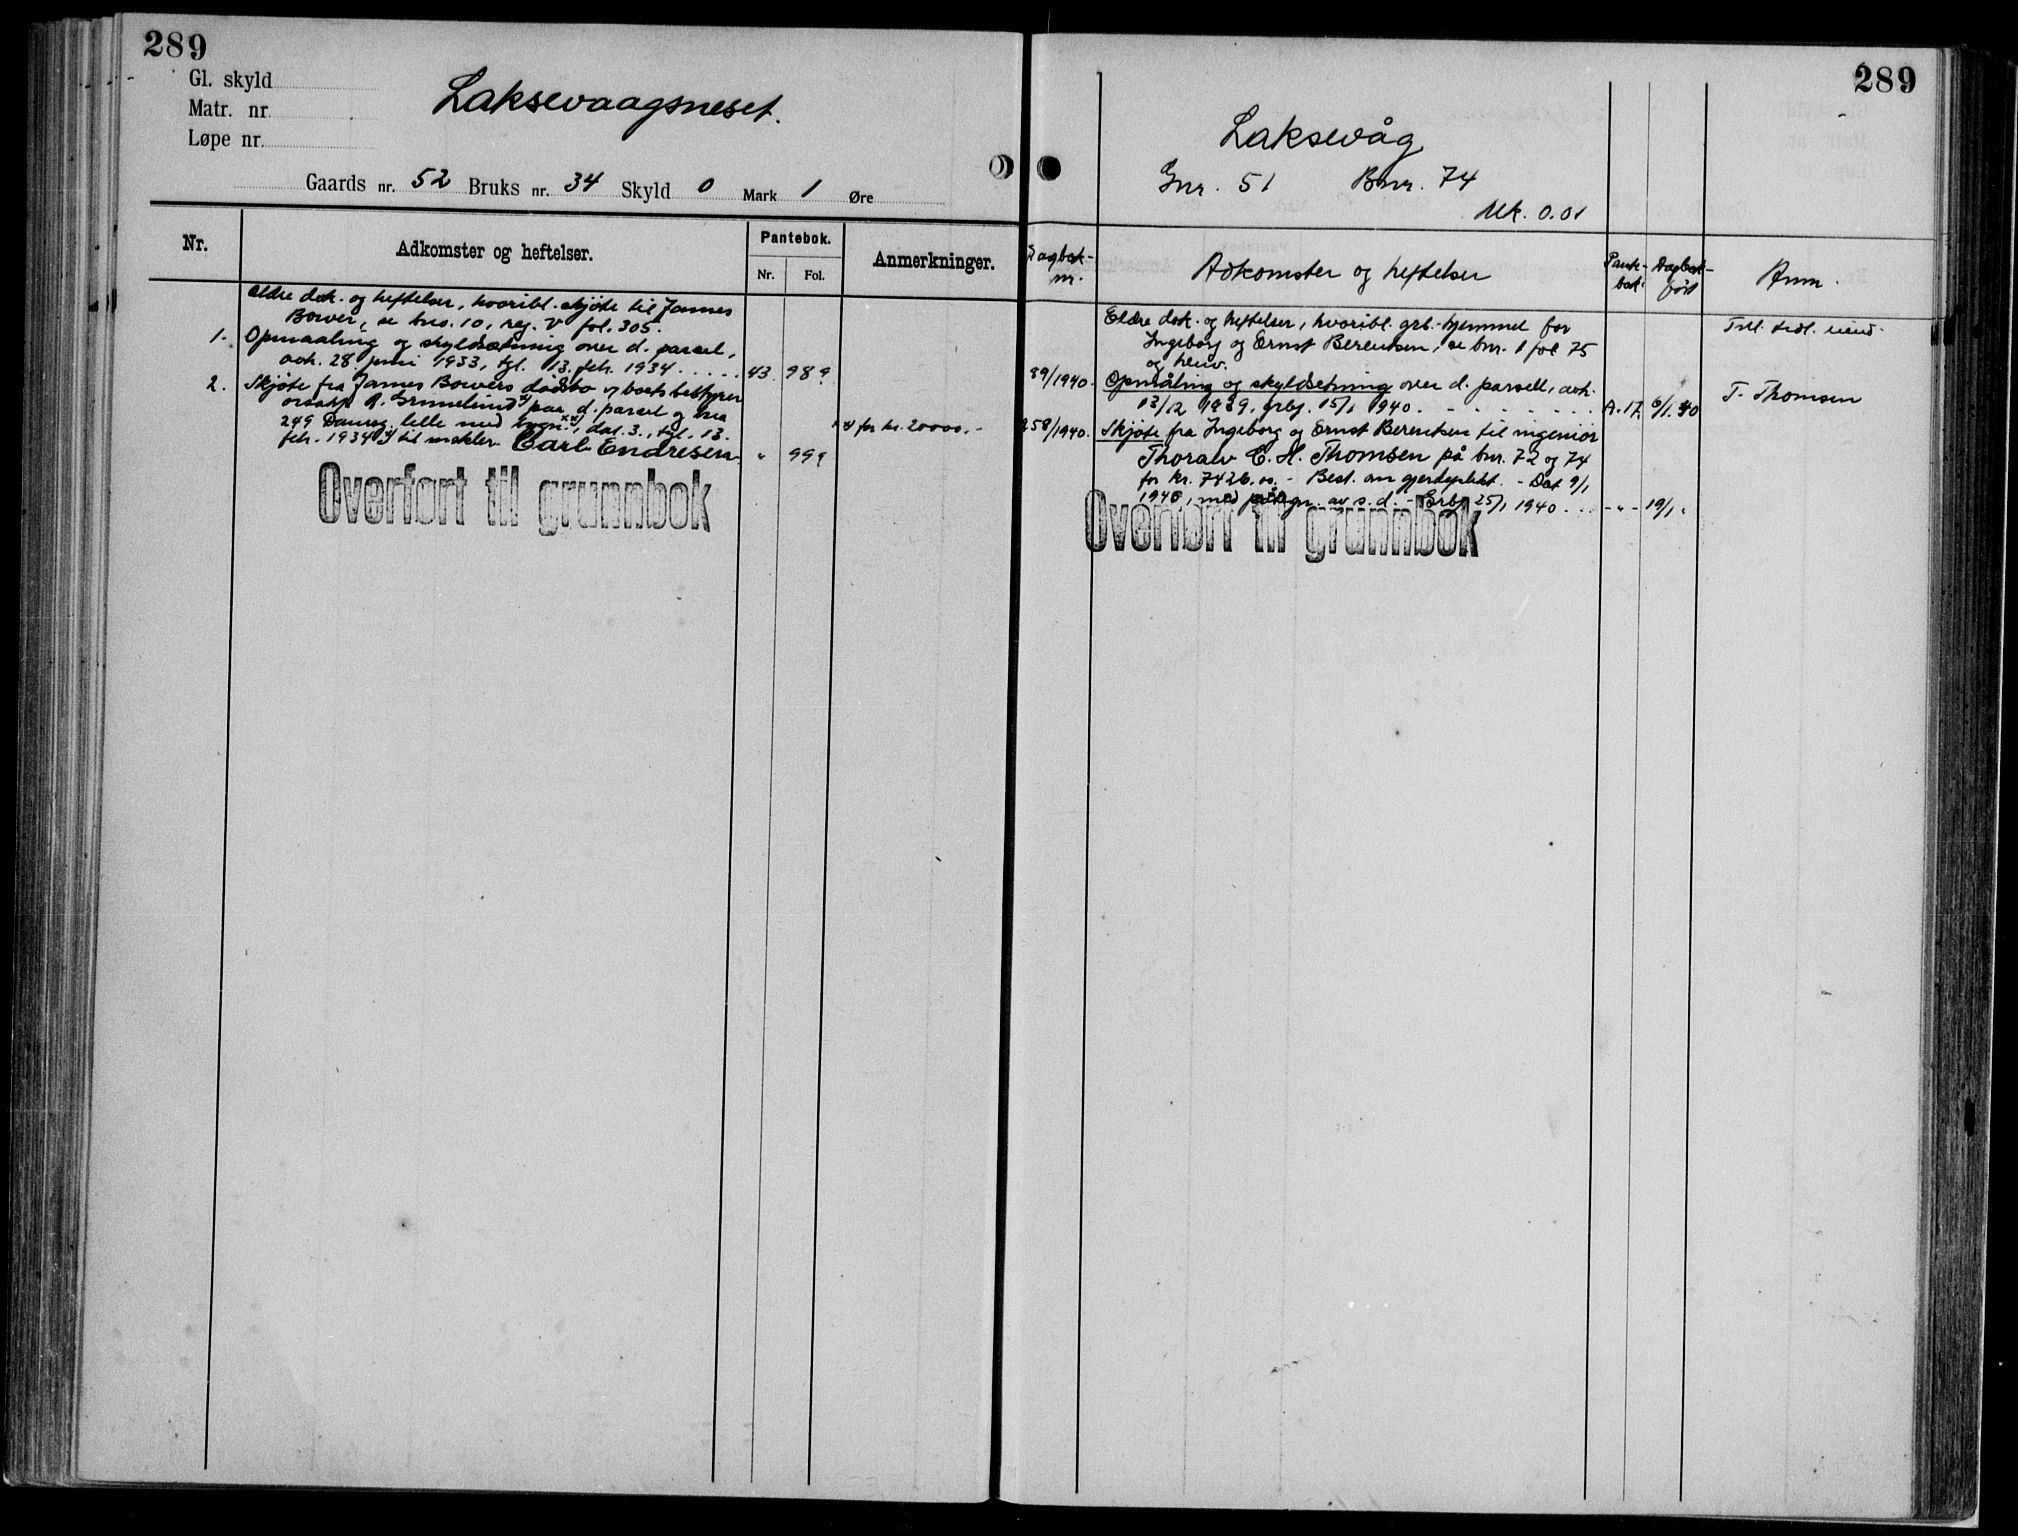 289
Gl. skyld
Matr. nr.
Løpe nr.
Laksevaagsneset.
Gaards nr. 52 Bruks nr. 34 Skyld 0 Mark 1 Øre
Nr. Adkomster og heftelser. Pantebok. Anmerkninger.
Nr. Fol.
Eldre dok. og heftelser, hvoribl. skjøte til James
Bower, se bno. 10, reg. V fol. 305.
1. Opmaaling og skyldsætning over d. parsel,
avh. 28 juni 1933, tgl. 13. feb. 1934 . . . . . 43 989
2. Skjøte fra James Bowers dødsbo v/ boets bestyrer
orsakf. paa d. parsel og bna
249 Damsg. lille med bygn. xx), dat. 3., tgl. 13.
feb. 1934 til mekler Carl Endresen " 999
x) for kr. 20000.-
Overført til grunnbok
289
Laksevåg
Gnr. 51 Bnr. 74
Mk. 0.01
Dagbok-nr. Adkomster og heftelser Pantebok Dagbokført Anm.
Eldre dok. og heftelser, hvoribl. grb.-hjemmel for
Ingeborg og Ernst Berentsen, se bnr. 1 fol 75
og henv.
Till. tidl. eiend.
89/1940. Opmåling og skyldsetning over d. parsell, avh.
13/12 1939, grbf. 15/1 1940. - - - - . . . A. 17. 6/1. 40 T. Thomsen
258/1940. Skjøte fra Ingeborg og Ernst Berentsen til ingeniør
Thoralv C. H. Thomsen på bnr. 72 og 74
for kr. 7426.00. - Best. om gjerdeplikt. - Dat 9/1
1940, med påtegn. av s. d. - Grbf 25/1 1940 . . . - " - 19/1 "
Overført til grunnbok